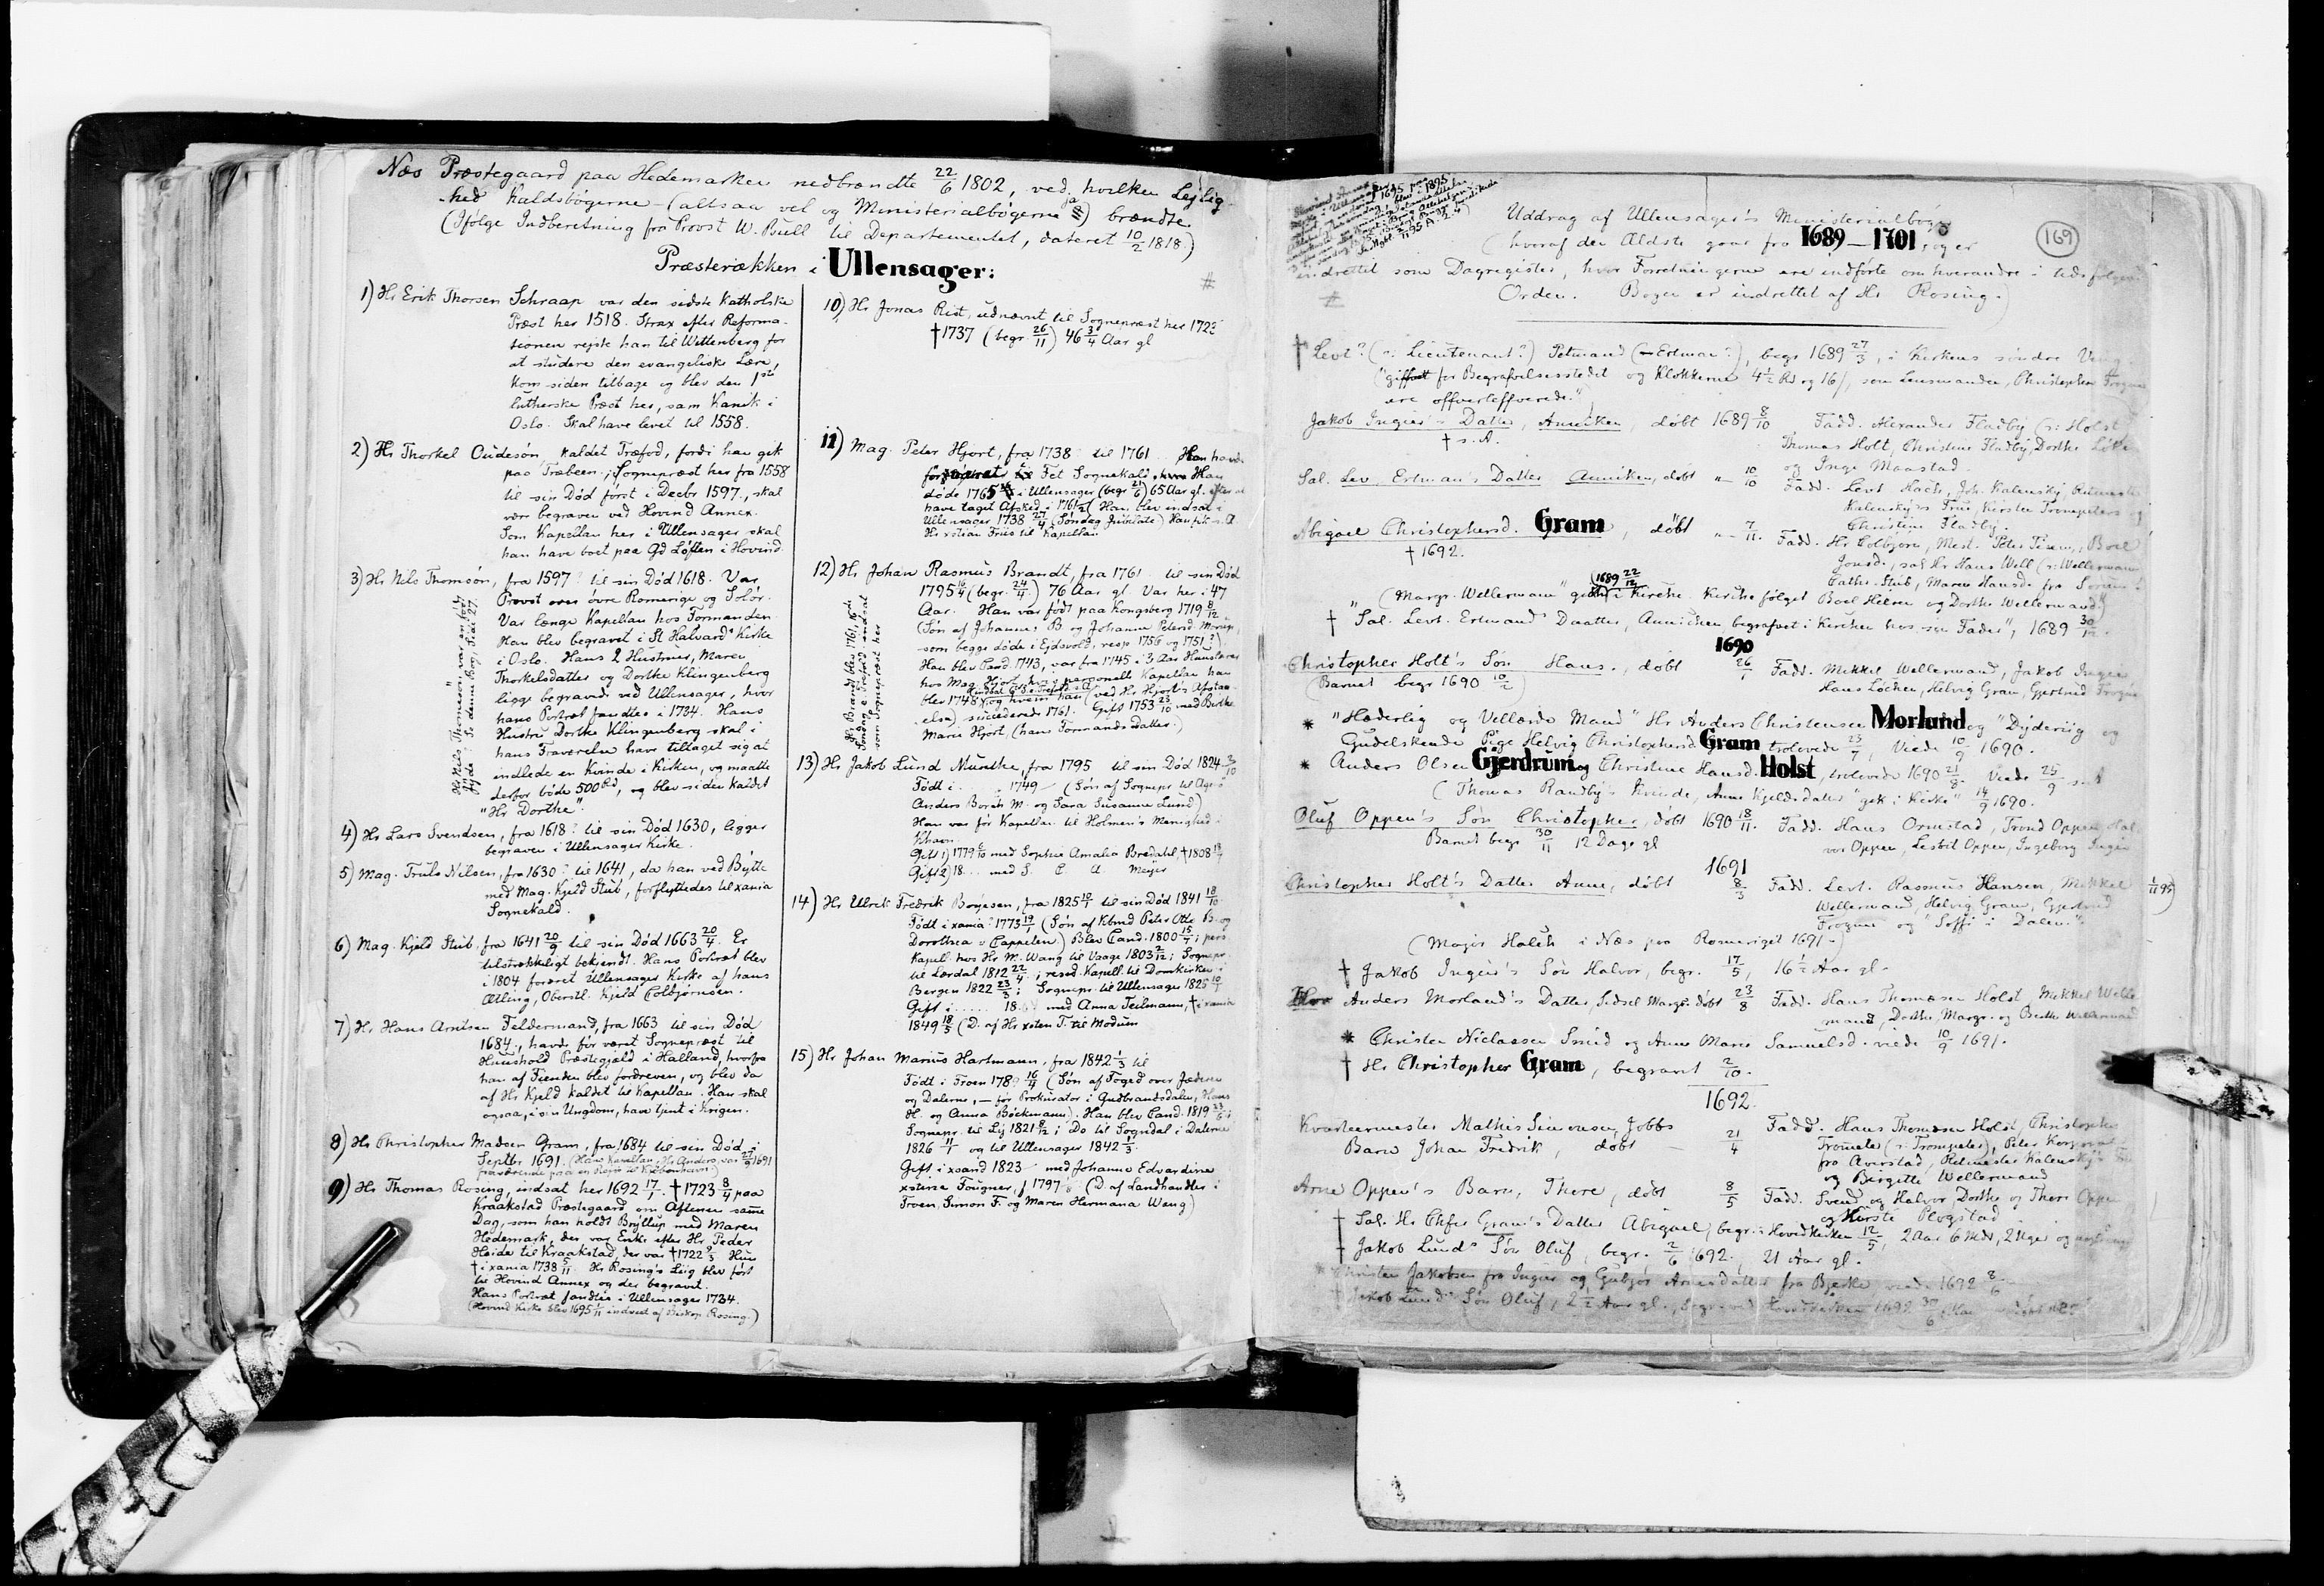 Næs Præstegaard paa Hedemarken nedbrændte 22/6 1802, ved hvilken Lejlig-
hed Kaldsbøgerne (altsaa vel og Ministerialbøgerne) brændte.
(Ifølge Indberetning fra Provst W. Bull til Departementet, dateret 10/2 1818.)
Præsterækken i Ullensager:
1) Hr Erik Thorsen Schraap var den sidste katholske
Præst her 1518. Strax efter Reforma-
tionen rejste han til Wittenberg for
at studere den evangeliske Lære,
kom siden tilbage og blev den 1ste
lutherske Præst her, sam Kanik i
Oslo. Skal have levet til 1558.
2) Hr Thorkel Audesøn, kaldet Træfod, fordi han gik
paa Træbeen; Sognepræst her fra 1558
til sin Død først i Decbr 1597, skal
være begraven ved Hovind Annex.
Som Kapellan her i Ullensager skal
han have boet paa Gd Løften i Hovind.
3) Hr Nils Thomsøn, fra 1597? til sin Død 1618. Var
Provst over øvre Romerige og Solør.
Var længe Kapellan hos Formanden
Han blev begravet i St Halvards Kirke
i Oslo. Hans 2 Hustruer, Maren
Thorkelsdatter og Dorthe Klingenberg
ligge begravede ved Ullensager, hvor
hans Portræt fandtes i 1734. Hans
Hustru Dorthe Klingenberg skal i
hans Fraværelse have tiltaget sig at
indlede en Kvinde i Kirken, og maatte
derfor bøde 500 Rd, og blev siden kaldet
"Hr Dorthe".
4) Hr Lars Svendsen, fra 1618? til sin Død 1630, ligger
begraven i Ullensager Kirke.
5) Mag. Truls Nilsen, fra 1630? til 1641, da han ved Bytte
med Mag. Kjeld Stub, forflyttedes til xania
Sognekald.
6) Mag. Kjeld Stub, fra 1641 20/9 til sin Død 1663 20/4. Er
tilstrækkeligt bekjendt. Hans Portræt blev
i 1804 foræret Ullensager Kirke af hans
Ætling, Oberstl. Kjeld Colbjørnsen.
7) Hr Hans Arntsen Feldermand, fra 1663 til sin Død
1684, havde før været Sognepræst til
Huushold Præstegjæld i Halland, hvorfra
han af Fienden blev fordreven, og blev da
af Hr Kjeld kaldet til Kapellan. Han skal
ogsaa, i sin Ungdom, have tjent i Krigen.
8) Hr Christopher Madsen Gram, fra 1684 til sin Død i
Septbr 1691. (Hans Kapellan, Hr Anders, var 27/9 1691
fraværende paa en Rejse til Kjøbenhavn)
9) Hr Thomas Rosing, indsat her 1692 17/1. † 1723 8/4 paa
Kraakstad Præstegaard om Aftenen samme
Dag, som han holdt Bryllup med Maren
Hedemark, der var Enke efter Hr Peder
Heide til Kraakstad, der var † 1722 Hun
† i xania 1738 5/11. Hr Rosing's Liig blev ført
til Hovind Annex og der begravet.
Hans Portræt fandtes i Ullensager 1734.
(Hovind Kirke blev 1695 1/11 indviet af Biskop Rosing.)
10) Hr Jonas Rist, udnævnt til Sognepræst her 1723
† 1737 (begr 26/11) 46 3/4 Aar gl
11) Mag. Peter Hjort, fra 1738 til 1761. Han havde
Fet Sognekald. Han
døde 1765 i Ullensager (begr 21/6) 65 Aar gl. efter at
have taget Afsked i 1761. (Han blev indsat i
Ullensager 1738 27/4, Søndag Jubilate) Han fik s. A.
Hr xstian Friis til Kapellan
12) Hr Johan Rasmus Brandt, fra 1761 til sin Død
1795 16/4 (begr. 24/4.) 76 Aar gl. Var her i 47
Aar. Han var født paa Kongsberg 1719 8/12
(Søn af Johannes B og Johanne Petersd. Morup,
som begge døde i Ejdsvold, resp 1756 og 1751?)
Han blev Cand. 1743, var fra 1745 i 3 Aar Huuslærer
hos Mag. Hjort, hvis personelle Kapellan han
blev 1748, og hvem han (ved Hr Hjort's Afstaa-
else) succederede 1761. Gift 1753 23/10 med Birthe
Marie Hjort, (hans Formands Datter.)
13) Hr Jakob Lund Munthe, fra 1795 til sin Død 1824 3/10
Født i 1749 (Søn af Sognepr til
Anders Borch M. og Sara Susanne Lund)
Han var før Kapellan til Holmen's Menighed i
Khavn.
Gift 1) 1779 med Sophie Amalia Bredahl, † 1808
Gift 2) 18... med S. C. A. Meyer
14) Hr Ulrik Fredrik Børjesen, fra 1825 til sin Død 1841 18/10
Født i xania 1773 19/1 (Søn af Kbmd Peter Otto B. og
Dorothea v Cappelen) Blev Cand. 1800 15/7; pers
Kapell. hos Hr M. Wang til Vaage 1803 2/12; Sognepr.
til Lærdal 1812 22/4; resid. Kapell. til Domkirken i
Bergen 1822 23/3; Sognepr. til Ullensager 1825
Gift i ...... 18 med Anna Teilmann, † i xania
1849 18/5 (D. af Hr xsten T. til Modum
15) Hr Johan Marius Hartmann, fra 1842 1/3 til
Født i Froen 178 16/4 (Søn af Foged over Jæderen
og Dalerne, — før Prokurator i Gudbrandsdalen, Hans
H. og Anna Bøckmann). Han blev Cand. 1819
Sognepr. til Lij 1821 8/12; Do til Sogndal i Dalerne
1826 11/1 og til Ullensager 1842 1/3.
Gift i xsand 1823 med Johanne Edvardine
xstine Fougner, f 1797 (D. af Landhandler i
Froen, Simon F. og Maren Hermana Wang)
Uddrag af Ullensager's Ministerialbøger
(hvoraf den Ældste gaar fra 1689–1701, og er
169
indrettet som Dagregister, hvor Forretningerne ere indførte om hverandre i tidsfølgende
Orden. Bogen er indrettet af Hr Rosing.)
† Levt? (ɔ: Lieutenant?) Petmand (Ertman?), begr 1689 27/3, i Kirkens søndre
("giffvet for Begrafvelsesstedet og Klokkerne 4 1/2 Rd og 16/, som Lensmanden, Christopher Frogner
ere offverleffverede."
Jakob Ingier's Datter, Annicken, døbt 1689 8/10 Fadd. Alexander Fladby (ɔ: Holst)
† s. A.
Thomas Holt, Christine Fladby, Dorthe
og Inge Maastad.
Sal. Lev. Ertman's Datter Anniken, døbt 10/10 Fadd. Levt Hach, Joh. Kalensky, Ritmester
Kalensky's Frue, Kirsten Trompeters og
Christine Fladby.
Abigael Christophersd. Gram, døbt 7/11. Fadd. Hr Colbjørn, Mest. Peter, Boel
† 1692.
Jonsd., sal Hr Hans Well (ɔ: Wellermand
Cathr. Stub, Maren Hansd. fra Sørum
(Margr. Wellermann 1689 22/12 i Kirche. Kirche følget Boel Hiern og Dorthe Wellermand.)
† "Sal. Levt. Ertmands Daatter, Annichen, begrafvet i Kirchen hos sin Fader", 1689 30/12.
1690
Christopher Holt's Søn Hans, døbt 26/1 Fadd. Mikkel Wellermand, Jakob Ingier
(Barnet begr 1690 10/2)
Hans Løchen, Helvig Gram, Gjertrud Frogner
* "Hæderlig og Vellærde Mand" Hr Anders Christensen Morland og "Dyderiig og
Gudelskende Pige Helvig Christophersd. Gram trolovede 23/7, Viede 10/9 1690.
* Anders Olsen Gjerdrum og Christine Hansd. Holst, trolovede 1690 21/8. Viede 25/9 s. A
(Thomas Randby's Kvinde, Anne Kjeldsdatter "gik i Kirke" 14/9 1690.
Oluf Oppen's Søn Christopher, døbt 1690 18/11. Fadd. Hans Ormstad, Trond Oppen, Hal-
Barnet begr 30/11 12 Dage gl
vor Oppen, Lisbit Oppen, Ingeborg Ingier
1691
Christopher Holt's Datter Anne, døbt 8/3 Fadd. Levt. Rasmus Hansen, Mikkel
Wellermand, Helvig Gram, Gjertrud
Frogner og "Soffi i Dalen."
(Major Halch i Næs paa Romeriget 1691.)
† Jakob Ingier's Søn Halvor, begr. 17/5, 16 1/2 Aar gl.
Anders Morland's Datter, Sidsel Margr. døbt 23/8 Fadd. Hans Thomæsen Holst, Mikkel Welle-
mand, Dorthe, Margr. og Birthe Wellermand
* Christen Niclassen Smid og Anne Marie Samuelsd. viede 10/9 1691.
† Hr Christopher Gram, begravet 2/10.
1692.
Kvarteermester Mathis Simensen Jobbs Fadd. Hans Thomæsen Holst, Christopher
Barn Johan Fredrik, døbt 21/4 Trometer (ɔ: Trompeter), Peter Korporal
fra Averstad, Ritmester Kalensky's
og Birgitte Wellermand
Arne Oppen's Barn, Thore, døbt 8/5 Fadd. Svend og Halvor Dorthe og Thore Oppen
og Kirsti Plogstad
† Sal. Hr Chfer Gram's Datter Abigael, begr. i Hovedkirken 12/5, 2 Aar 6 Mdr, 2 Uger og
† Jakob Lund's Søn Oluf, begr. 2/6 1692. 21 Aar gl.
* Christen Jakobsen fra Ingier og Gubjør Arnesdatter fra Bjerke, viede 1692 8/6
† Jakob Lund's Søn Oluf, 2 1/2 Aar gl., begraved 1692 30/6